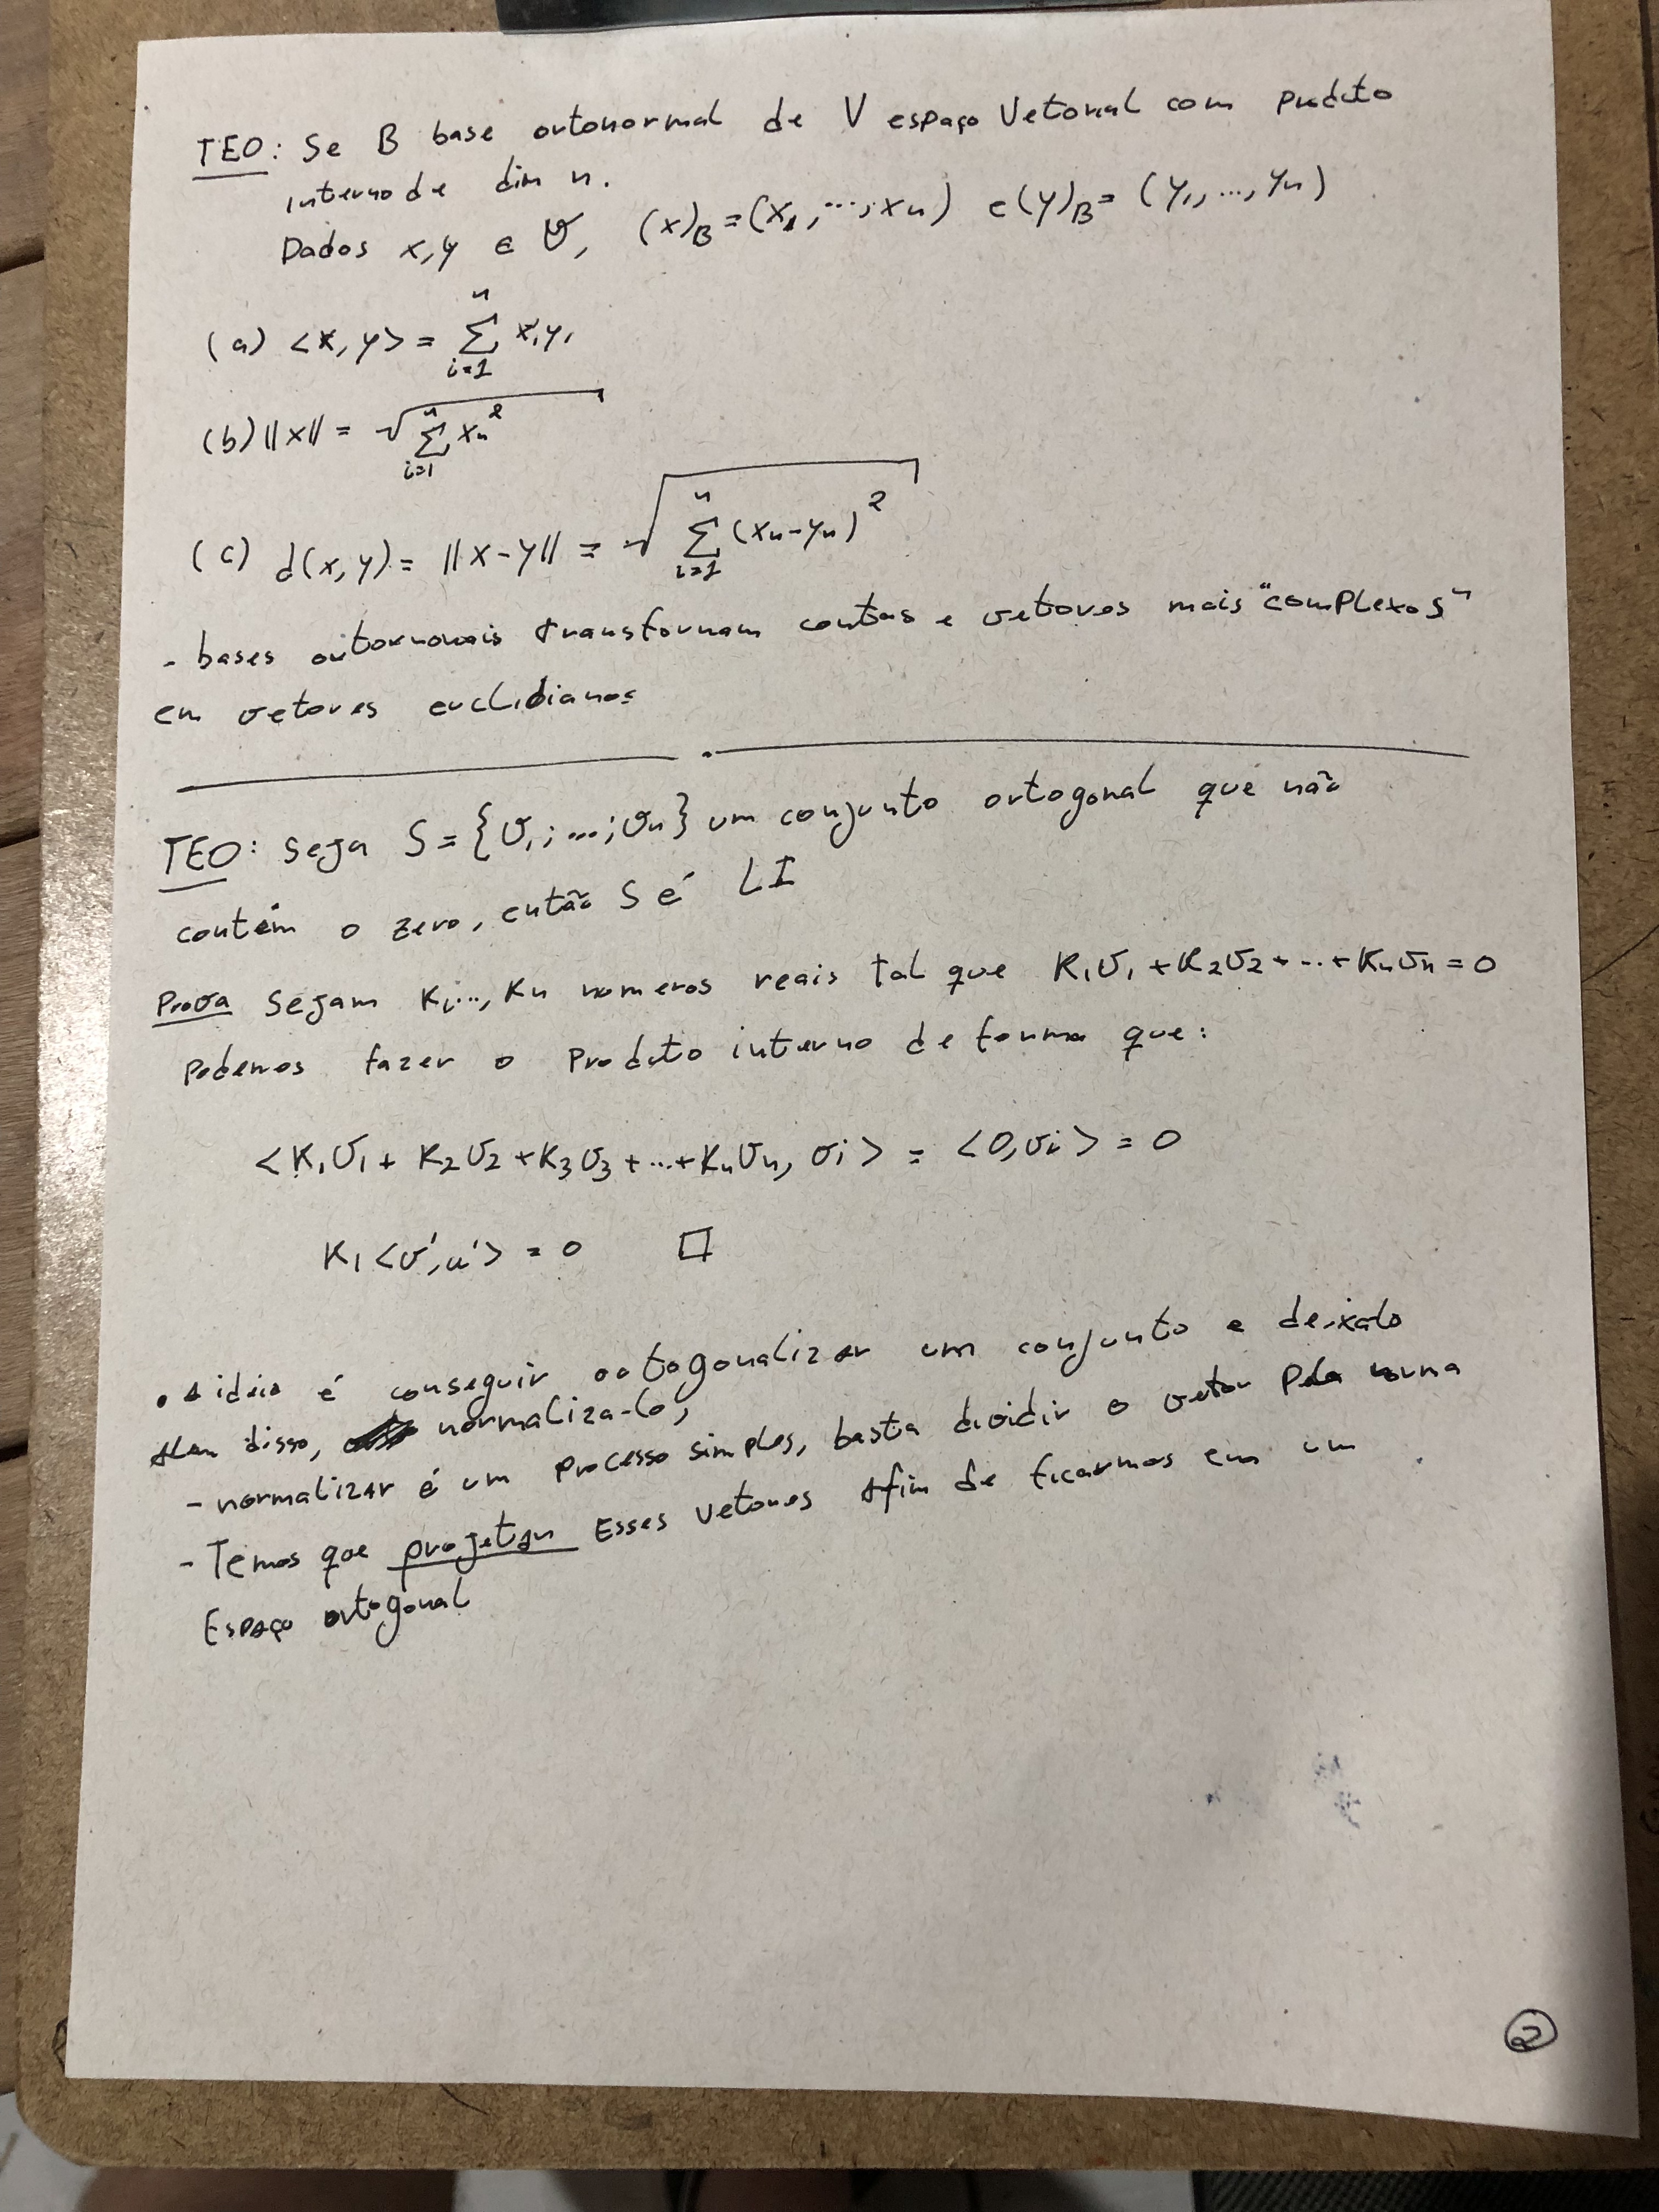 TEO: Se B base ortonormal de V espaço Vetorial com produto
interno de dim n.
Dados x,y ∈ V, (x)_B = (x₁,...,xn) e (y)_B = (y₁,...,yn)
(a) <x,y> = Σ_{i=1}^{n} xᵢyᵢ
(b) ||x|| = √(Σ_{i=1}^{n} xn²)
(c) d(x,y) = ||x-y|| = √(Σ_{i=1}^{n} (xn-yn)²)
- bases transformam contas e vetores mais "complexos"
em vetores euclidianos
TEO: Seja S = {v₁;...;vn} um conjunto ortogonal que não
contém o zero, então S é LI
Prova Sejam K₁..., Kn números reais tal que K₁v₁ + K₂v₂ + ... + Knvn = 0
Podemos fazer o Produto interno de forma que:
<K₁v₁ + K₂v₂ + K₃v₃ + ... + Knvn, vi> = <0,vi> = 0
K₁<v',u'> = 0 □
• A ideia é conseguir ortogonalizar um conjunto e deixalo
Alem disso, normaliza-lo;
- normalizar é um processo simples, basta dividir o vetor pela norma
- Temos que projetar Esses vetores Afim de ficarmos em um
Espaço ortogonal
2